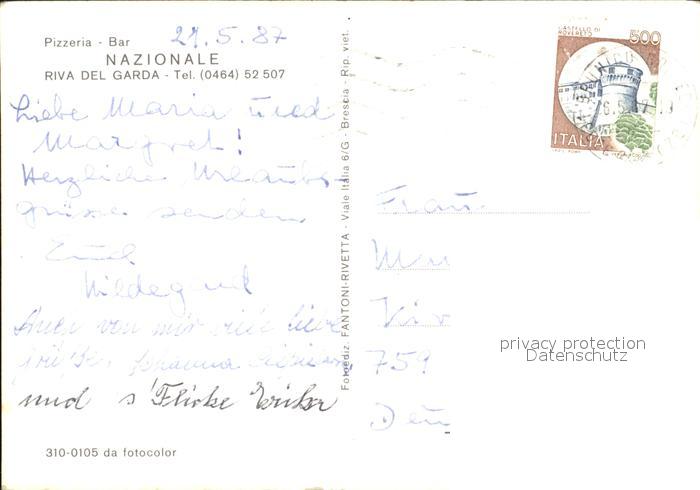 Pizzeria - Bar
21.5.87
NAZIONALE
RIVA DEL GARDA - Tel. (0464) 52 507
Liebe Maria und
Margret!
Herzliche Urlaubs-
grüsse senden
Euch
Hildegard
Auch von mir viele liebe
Grüße, Johanna
und s'Flicke Erika
310-0105 da fotocolor
Fotoediz. FANTONI-RIVETTA - Viale Italia 6/G - Brescia - Rip. viet.
CASTELLO DI
ROVERETO
500
ITALIA
Frau
Vir
759
Deu
privacy protection
Datenschutz